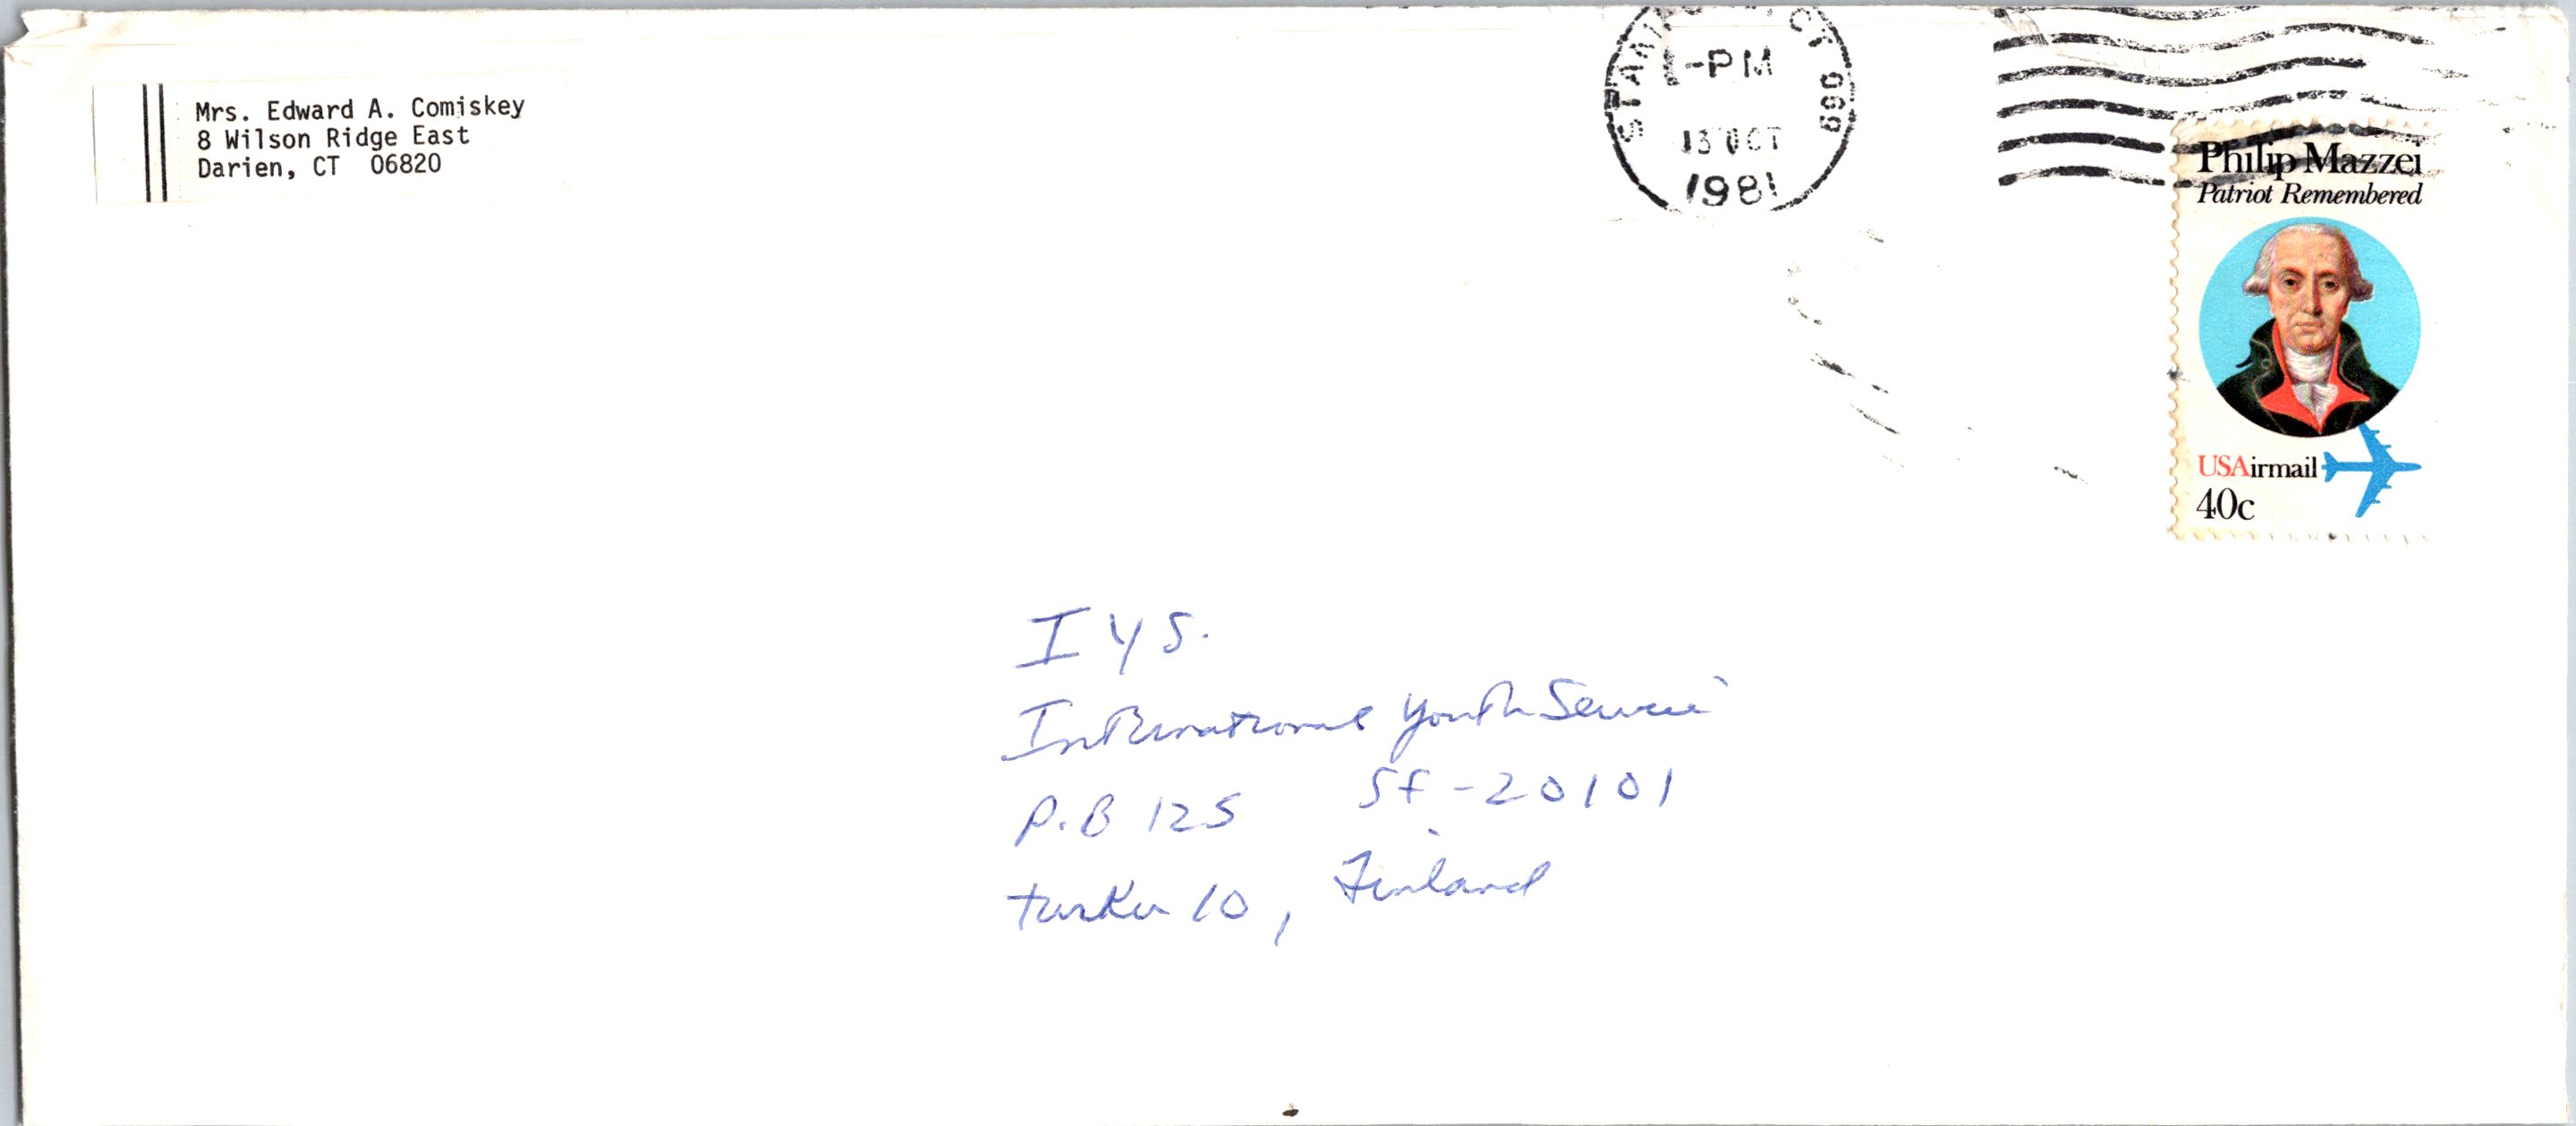 Mrs. Edward A. Comiskey
8 Wilson Ridge East
Darien, CT 06820
CT 069
PM
13 OCT
1981
Philip Mazzei
Patriot Remembered
USAirmail
40c
I Y S.
International Youth Service
P.B 125 SF-20101
Turku 10, Finland